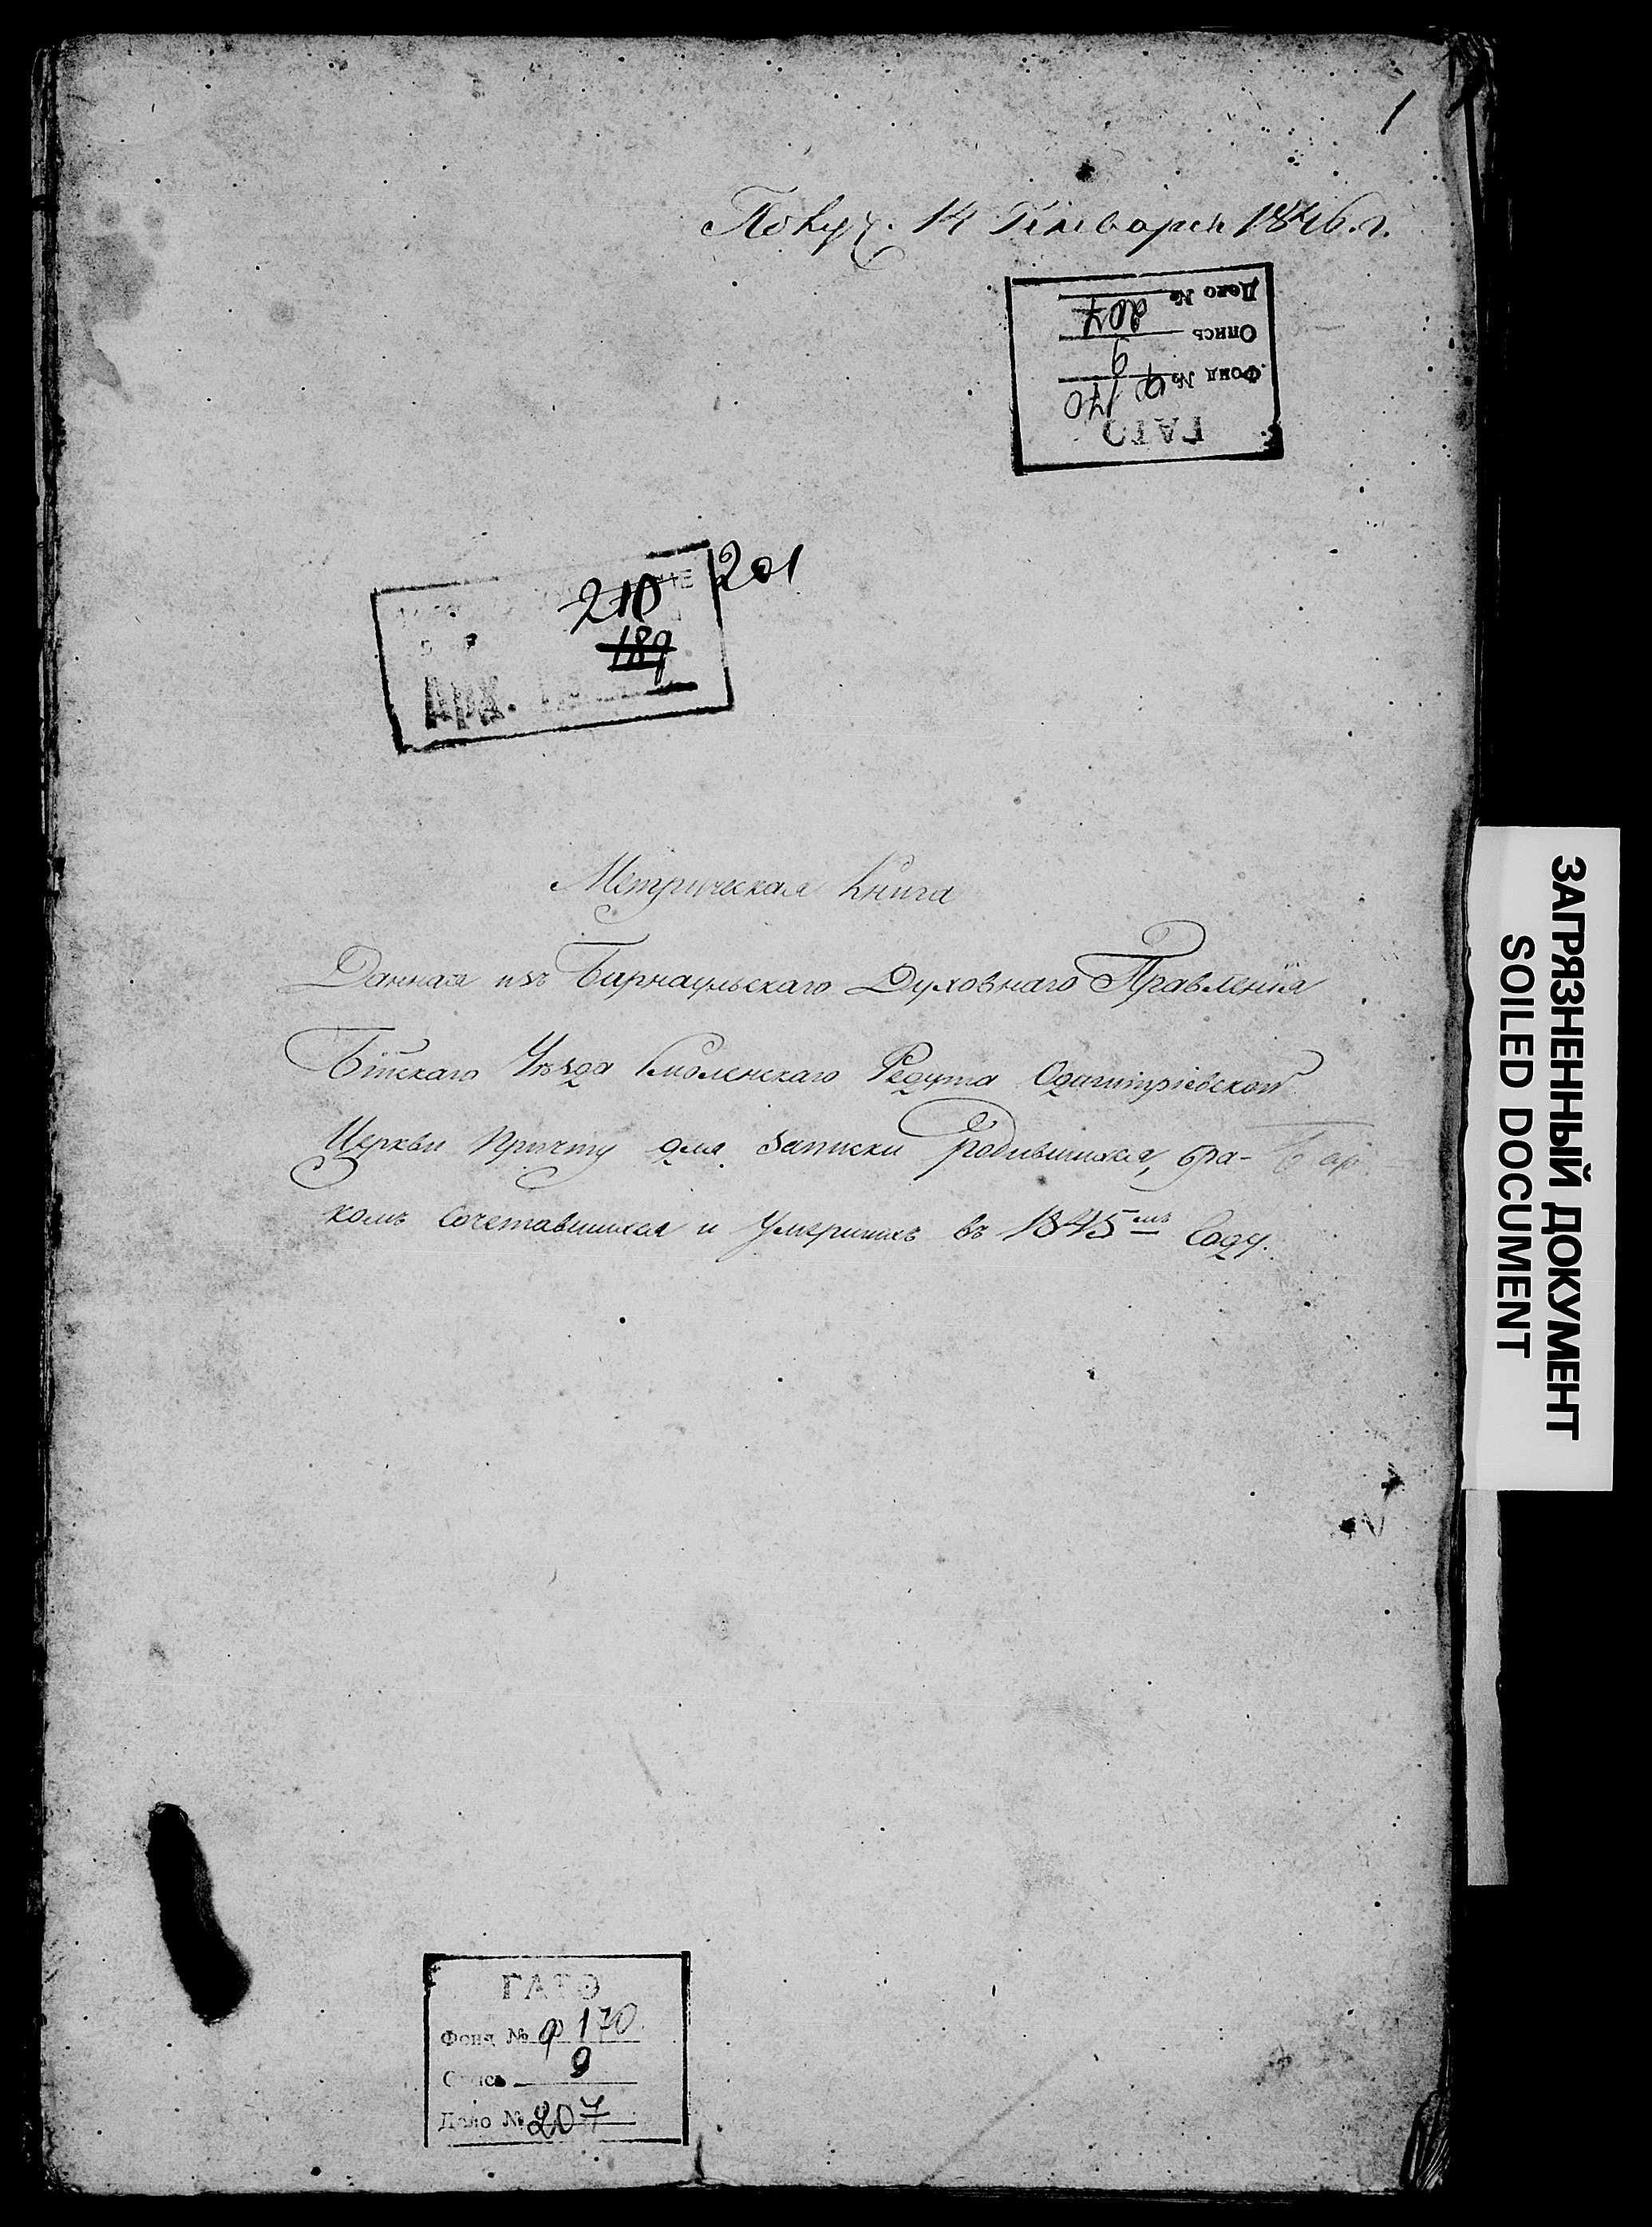 1
Получ. 14 Генваря 1846. г.
ГАТО
Фонд № ф 170
Опись 9
Дело № 207
201
210
189
Арх.
Метрическая Книга
Данная изъ Барнаульскаго Духовнаго Правленія
Бійскаго Уѣзда Смоленскаго Редута Одигитріевской
Церкви Причту для Записки Родившихся, бра-
комъ Сочетавшихся и Умершихъ въ 1845мъ Году.
Бар
ГАТО
Фонд № ф 170
Опись 9
Дело № 207
ЗАГРЯЗНЕННЫЙ ДОКУМЕНТ
SOILED DOCUMENT